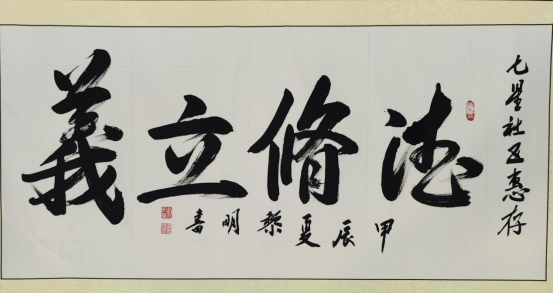 七星社区惠存
德脩立義
甲辰夏黎明書